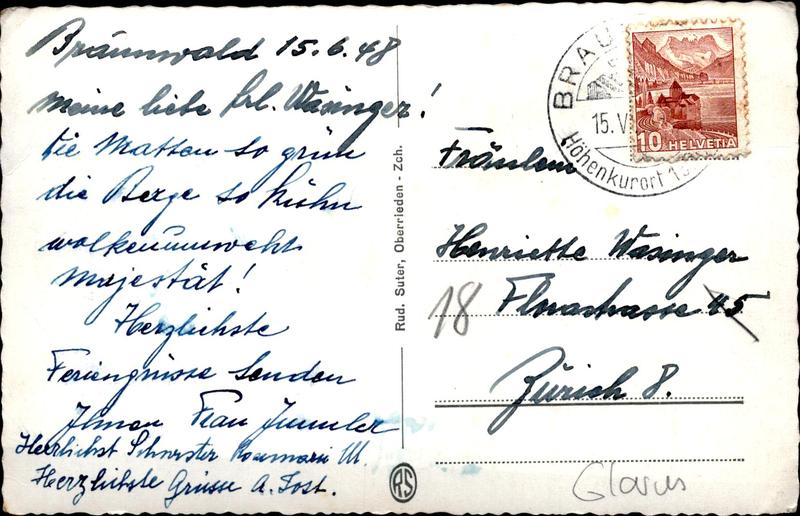 Bräunwald 15.6.48
meine liebe Frl. Wasinger!
die Matten so grün
die Berge so kühn
wolkenumweht
Majestät!
Herzlichste
Feriengrüsse senden
Ihnen Frau Jmmler
Herzlichst Schwester Rosmarie M
Herzlichste Grüsse A. Jost.
Rud. Suter, Oberrieden - Zch.
RS
BRAU
15. V
Höhenkurort
10 HELVETIA
Fräulein
Henriette Wasinger
18 Florastrasse 45
Zürich 8.
Glarus